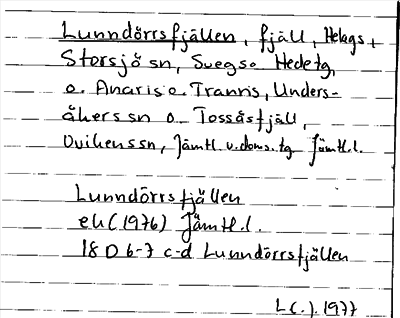 Lunndörrsfjällen, fjäll, Helags,
Storsjö sn, Svegs o Hede tg,
o. Anaris o. Tranris, Unders-
åkers sn o. Tossåsfjäll,
Ovikens sn, Jämtl. v. doms. tg Jämtl. l.
Lunndörrsfjällen
ek (1976) Jämtl. l.
18 D 6-7 c-d Lunndörrsfjällen
L(.). 1977